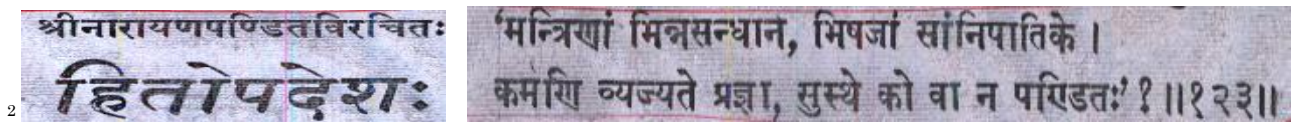 श्रीनारायणपण्डितविरचितः
हितोपदेशः
2
'मन्त्रिणां भिन्नसन्धाने, भिषजां सांनिपातिके ।
कर्मणि व्यज्यते प्रज्ञा, सुस्थे को वा न पण्डितः' ? ॥१२३॥